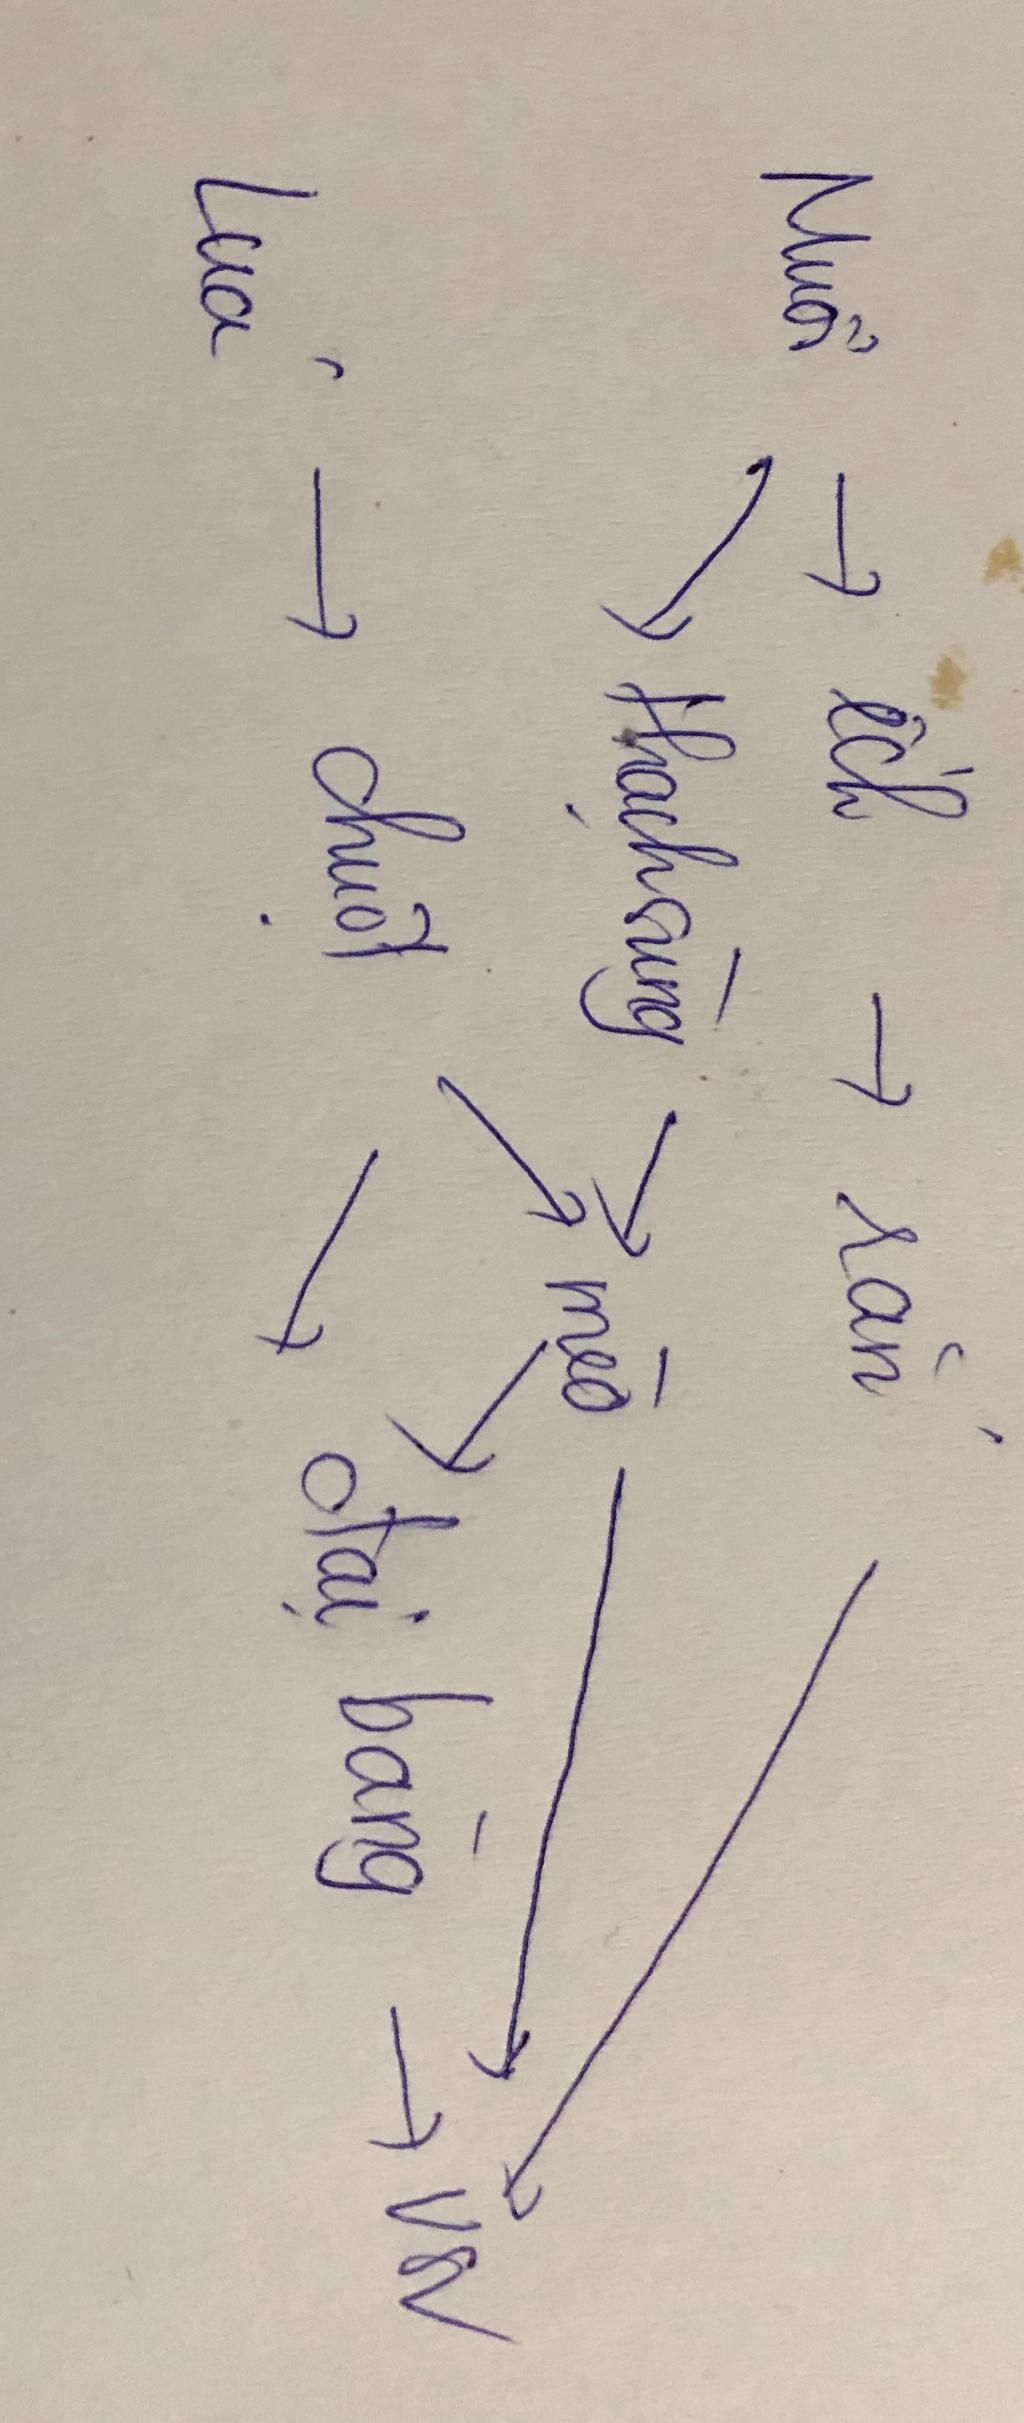 Muỗi → ếch → rắn
thạch sùng
mèo
Lúa → chuột
đại bàng → VSV